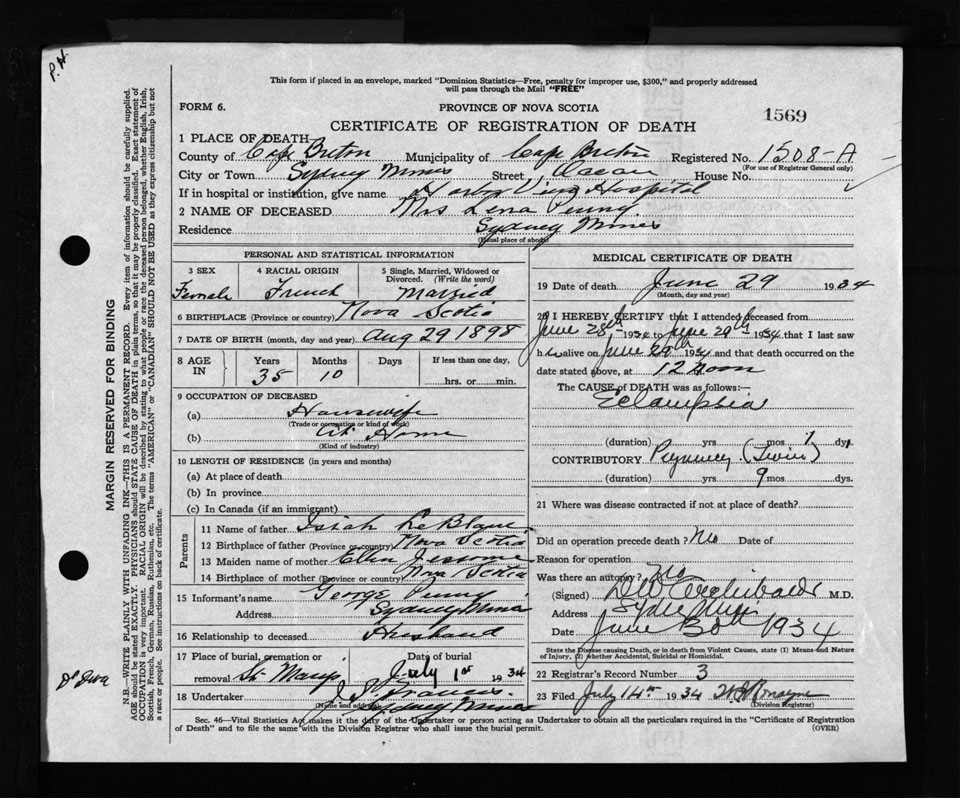 P. H.
This form if placed in an envelope, marked "Dominion Statistics—Free, penalty for improper use, $300," and properly addressed
will pass through the Mail "FREE"
FORM 6.
PROVINCE OF NOVA SCOTIA
1569
CERTIFICATE OF REGISTRATION OF DEATH
1 PLACE OF DEATH
County of Cape Breton Municipality of Cape Breton Registered No. 1508-A
(For use of Registrar General only)
City or Town Sydney Mines Street Ocean House No.
If in hospital or institution, give name Harbor View Hospital
2 NAME OF DECEASED Mrs Lena Penny
Residence Sydney Mines
(Usual place of abode)
PERSONAL AND STATISTICAL INFORMATION
3 SEX 4 RACIAL ORIGIN 5 Single, Married, Widowed or Divorced. (Write the word)
Female French Married
6 BIRTHPLACE (Province or country) Nova Scotia
7 DATE OF BIRTH (month, day and year) Aug 29 1898
8 AGE IN Years Months Days If less than one day,
35 10 hrs. or min.
9 OCCUPATION OF DECEASED
(a) Housewife
(Trade or occupation or kind of work)
(b) At Home
(Kind of industry)
10 LENGTH OF RESIDENCE (in years and months)
(a) At place of death
(b) In province
(c) In Canada (if an immigrant)
Parents
11 Name of father Isiah LeBlanc
12 Birthplace of father (Province or country) Nova Scotia
13 Maiden name of mother Ellen
14 Birthplace of mother (Province or country) Nova Scotia
15 Informant's name George Penny
Address Sydney Mines
16 Relationship to deceased Husband
17 Place of burial, cremation or removal St. Marys Date of burial July 1st 1934
18 Undertaker Francis.
(Name and address) Sydney Mines
MEDICAL CERTIFICATE OF DEATH
19 Date of death June 29 1934
(Month, day and year)
20 I HEREBY CERTIFY that I attended deceased from
June 28th 1934 to June 29th 1934 that I last saw
h alive on June 29th 1934 and that death occurred on the
date stated above, at 12 Noon
The CAUSE of DEATH was as follows:—
Eclampsia
(duration) yrs mos 1 dys.
CONTRIBUTORY Pregnancy (Twin)
(duration) yrs. 9 mos. dys.
21 Where was disease contracted if not at place of death?
Did an operation precede death? No Date of
Reason for operation
Was there an autopsy? No
(Signed) Archibald M.D.
Address Sydney Mines
Date June 30th 1934
State the Disease causing Death, or in death from Violent Causes, state (1) Means and Nature
of Injury, (2) whether Accidental, Suicidal or Homicidal.
22 Registrar's Record Number 3
23 Filed July 14th 1934 Romayne
(Division Registrar)
Sec. 46—Vital Statistics Act makes it the duty of the Undertaker or person acting as Undertaker to obtain all the particulars required in the "Certificate of Registration
of Death" and to file the same with the Division Registrar who shall issue the burial permit.
(OVER)
MARGIN RESERVED FOR BINDING
N.B.—WRITE PLAINLY WITH UNFADING INK—THIS IS A PERMANENT RECORD. Every item of information should be carefully supplied.
AGE should be stated EXACTLY. PHYSICIANS should STATE CAUSE OF DEATH in plain terms, so that it may be properly classified. Exact statement of
OCCUPATION is very important. RACIAL ORIGIN will be described by stating to what people or race the deceased person belonged, whether English, Irish,
Scottish, French, German, Russian, Ruthenian, etc. The terms "AMERICAN" or "CANADIAN" SHOULD NOT BE USED as they express citizenship but not
a race or people. See instructions on back of certificate.